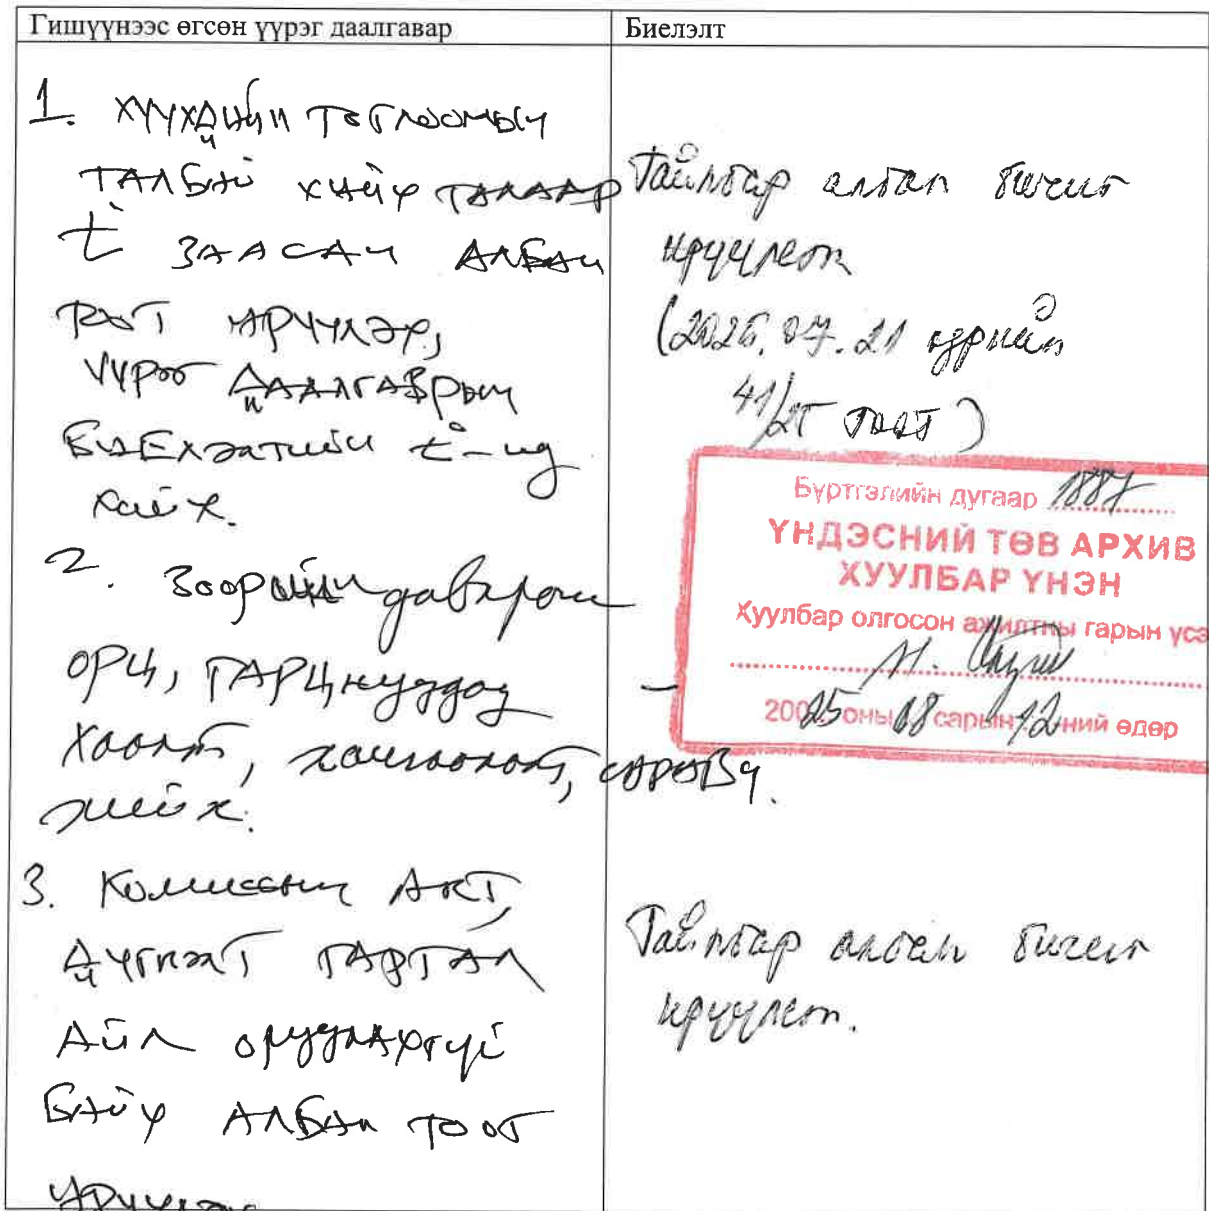 Гишүүнээс өгсөн үүрэг даалгавар
Биелэлт
1. ХҮҮХДИЙН ТОГЛООМЫН
ТАЛБАЙ ХИЙХ ТАЛААР
ЗААСАН АЛБАН
ТООТ ИРҮҮЛЭХ,
ҮҮРЭГ ДААЛГАВРЫН
БИЕЛЭЛТИЙН
хийх.
2. Зоорийн давхрын
ОРЦ, ГАРЦнууддад
Хаалт, хамгаалалт, САРАВЧ
хийх.
3. Комиссын АКТ,
ДҮГНЭЛТ ГАРТАЛ
АЙЛ оруулахгүй
БАЙХ АЛБАН ТООТ
ирүүлэх
Тайлбар албан бичиг
ирүүлсэн
(2025.07.21 өдрийн
41/25 тоот)
Бүртгэлийн дугаар 1887
ҮНДЭСНИЙ ТӨВ АРХИВ
ХУУЛБАР ҮНЭН
Хуулбар олгосон ажилтны гарын үсэ
2025 оны 08 сарын 12 ний өдөр
–
Тайлбар албан бичиг
ирүүлсэн.